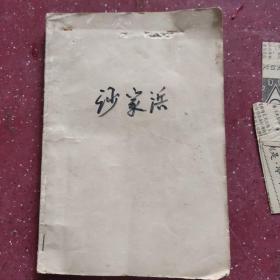 沙家浜